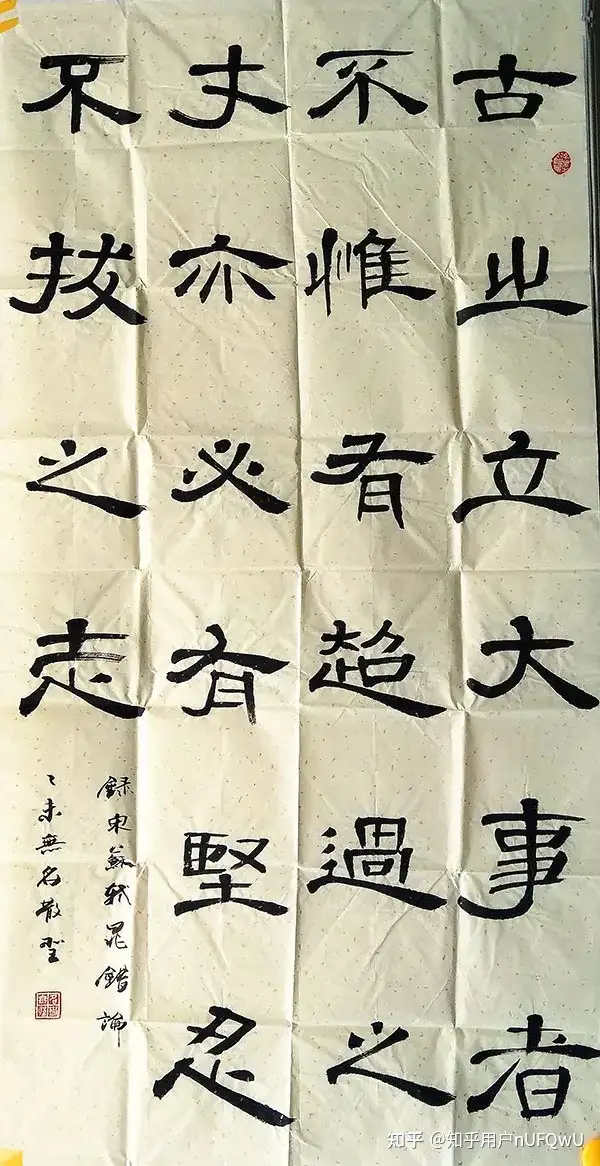 古之立大事者
不惟有超過之
才亦必有堅忍
不拔之志
錄宋蘇軾晁錯論
乙未無名散
知乎 @知乎用户nUFQwU